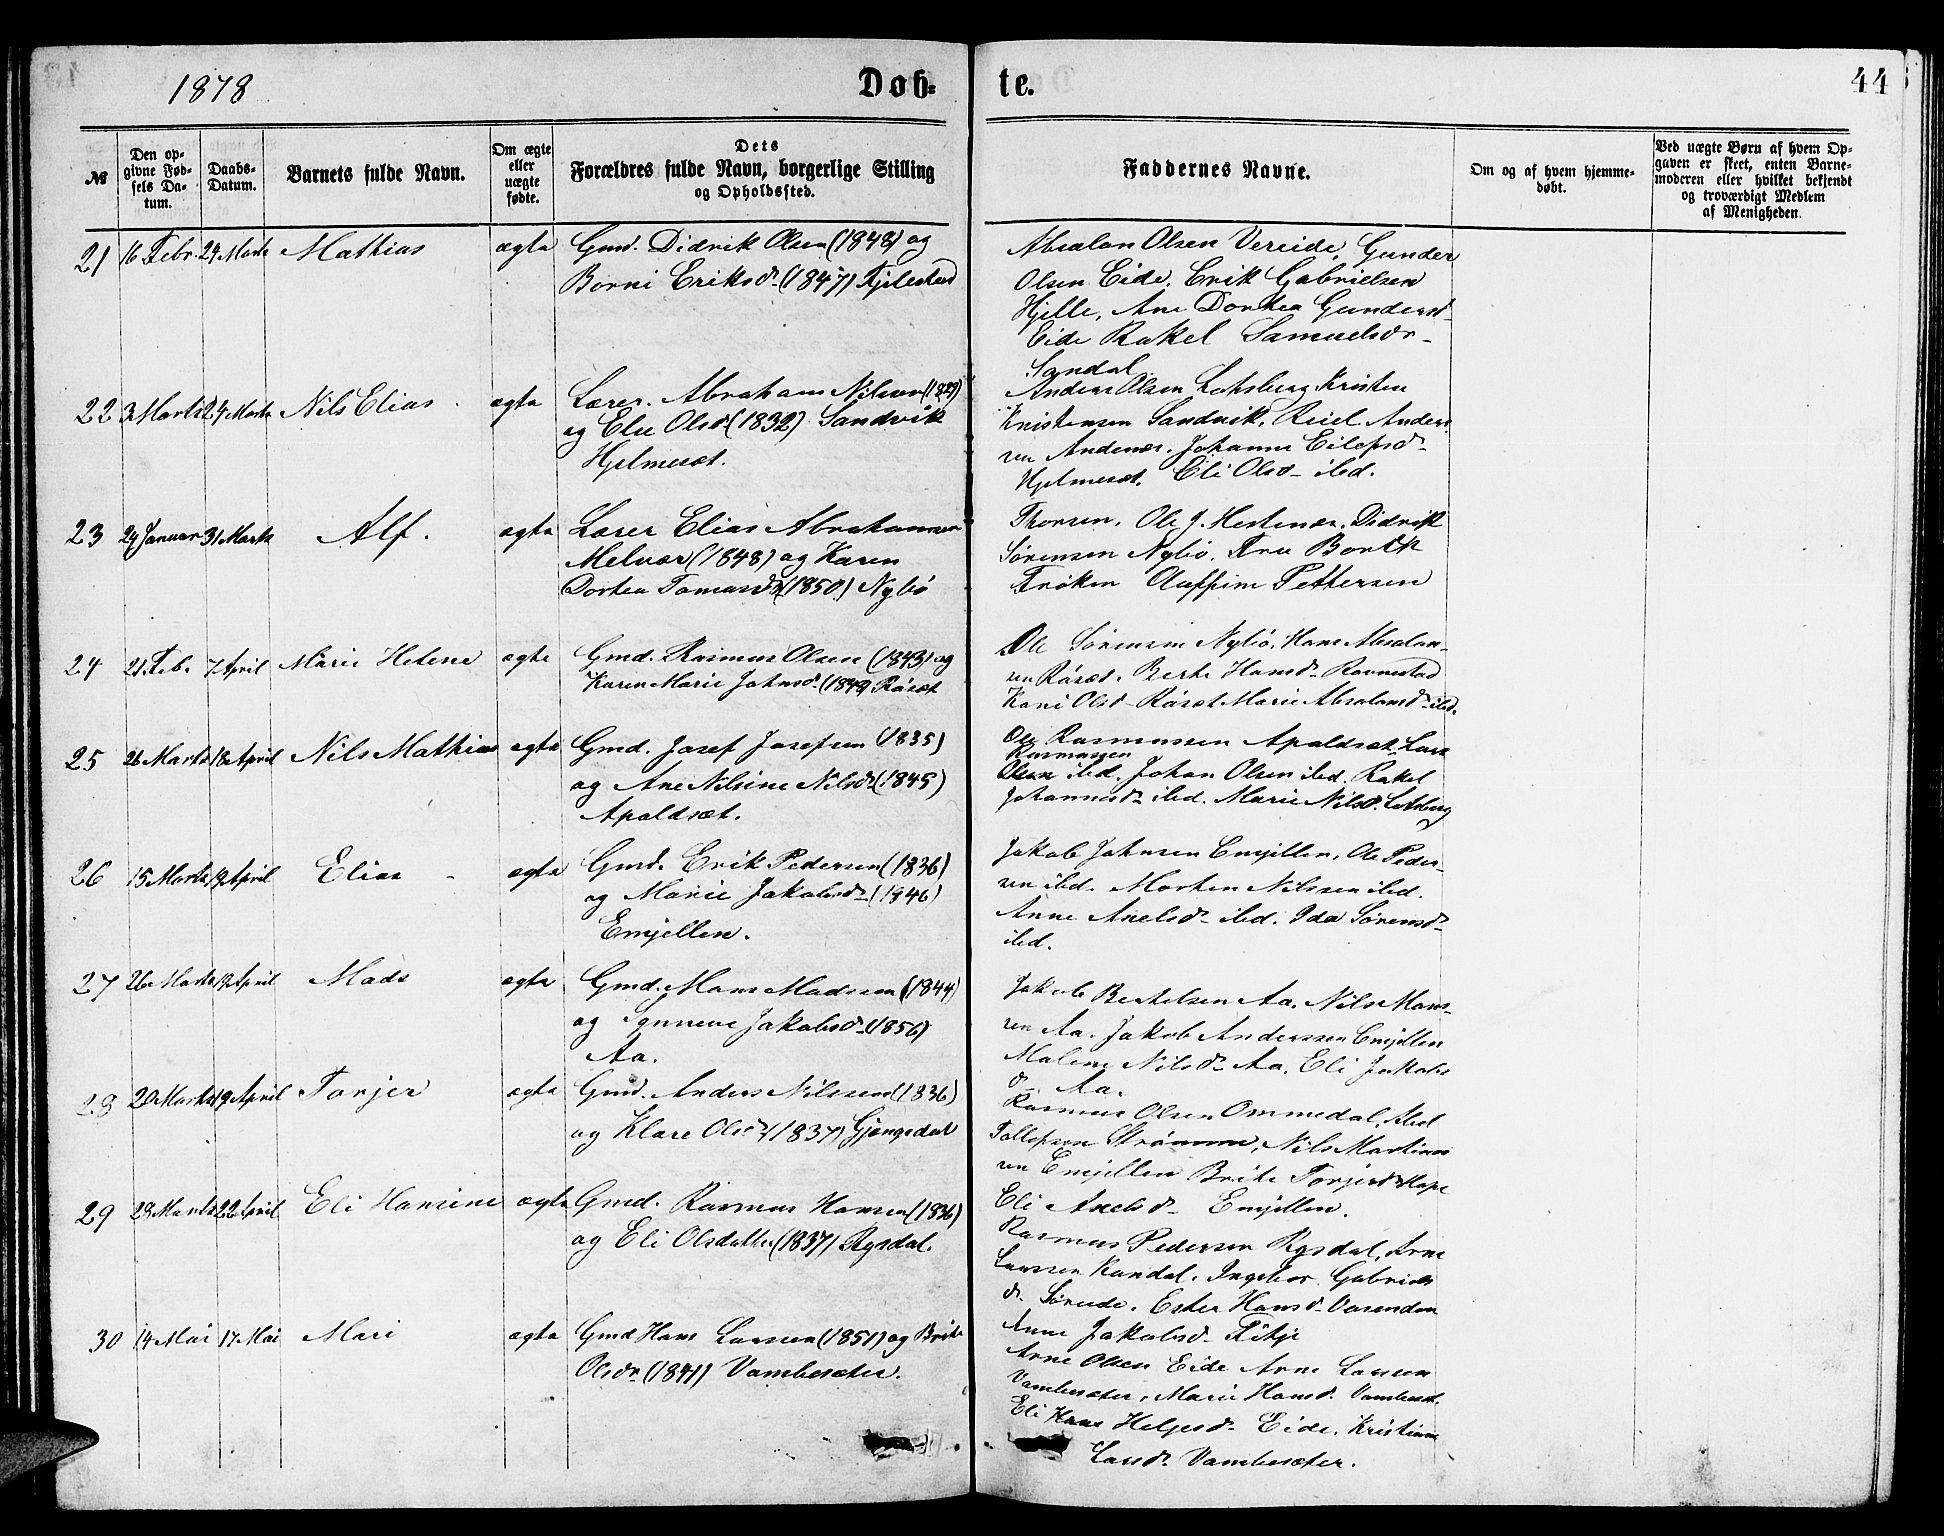 1878
Døb-
te.
44
№
Den op-
givne Fød-
sels Da-
tum.
Daabs-
Datum.
Barnets fulde Navn.
Om ægte
eller
uægte
fødte.
Dets
Forældres fulde Navn, borgerlige Stilling
og Opholdssted.
Faddernes Navne.
Om og af hvem hjemme-
døbt.
Ved uægte Børn af hvem Op-
gaven er skeet, enten Barne-
moderen eller hvilket bekjendt
og troværdigt Medlem
af Menigheden.
21 16 Febr. 24 Marts Mathias ægte Gmd. Didrik Olsen (1848) og
Borni Eriksd. (1847)
Absalon Olsen Vereide, Gunder
Olsen Eide, Erik Gabrielsen
Hjelle, Ane Dortea Gundersd.
Eide Rakel Samuelsdr
Sandal
22 3 Marts 24 Marts Nils Elias ægte Lærer. Abraham Nilssen
og Else Olsd (1832) Sandvik
Hjelmeset.
Anders Olsen Lotsberg Kristen
Kristensen Sandvik, Anders
sen Andenes, Johanne Eilefsd
Hjelmeset. Eli Olsd ibd.
23 24 Januar 31 Marts Alf. ægte Lærer Elias Abrahamsen
Melvær (1848) og Karen
Dortea Tomasdr (1850) Nybø
Thorsen, Ole J. Hestenæs, Didrik
Sørensen Nybø, Fru
Frøken Oluffine Pettersen
24 21. Feb. 7 April Marie Helene ægte Gmd. Rasmus Olsen (1843) og
Karen Marie Johnsd. Råset
Ole Sørensen Nybø, Hans Absalon-
sen Råset, Berte Hansd. Ravnestad
Kari Olsd Råset Marie Absalonsd ibd.
25 26 Marts 18 April Nils Mathias ægte Gmd. Josef Josefsen (1835)
og Ane Nilsine Nilsd (1845)
Apaldset.
Ole Rasmussen Apaldset Lars
Rasmussen
Olsen ibd. Johan Olsen ibd. Rakel
Johannesd ibd. Marie Nilsd. Lotsberg
26 15 Marts 19 April Elias ægte Gmd. Erik Pedersen (1836)
og Marie Jakobsd (1846)
Emjellen.
Jakob Johnsen Emjellen, Ole Peder-
sen ibd. Morten Nilssen ibd.
Anne Axelsd ibd. Ida Sørensd
ibd.
27 26 Marts 19 April Mads ægte Gmd. Mons Madssen (1844)
og Synneve Jakobsd (1856)
Aa.
Jakob Bertelsen Aa, Nils Mons-
sen Aa. Jakob Anderssen Emjellen
Malene Nilsd. Aa, Eli Jakobs
d. Aa.
28 20 Marts 19 April Torjer ægte Gmd. Anders Nilssen (1836)
og Klare Olsd (1837) Gjengedal
Rasmus Olsen Ommedal, Abel
Tollefsen Strømme, Nils Martinus
sen Emjellen Brite Torjersd Hope
Eli Axelsd Emjellen.
29 28 Marts 22 April Eli Hansine ægte Gmd. Rasmus Hansen (1836)
og Eli Olsdatter (1837) Rysdal.
Rasmus Pedersen Rysdal, Arne
Larssen Kandal, Ingebor Gabriels
d. Søreide, Ester Hansd. Vasenden
Anne Jakobsd
30 14 Mai 17 Mai Mari ægte Gmd Hans Larssen (1851) og Brite
Olsdr (1841) Vambesæter.
Arne Olsen Eide Arne Larsen
Vambesæter, Marie Hansd. Vambeset.
Eli Helgesd. Eide, Kristianne
Larsd. Vambesæter.